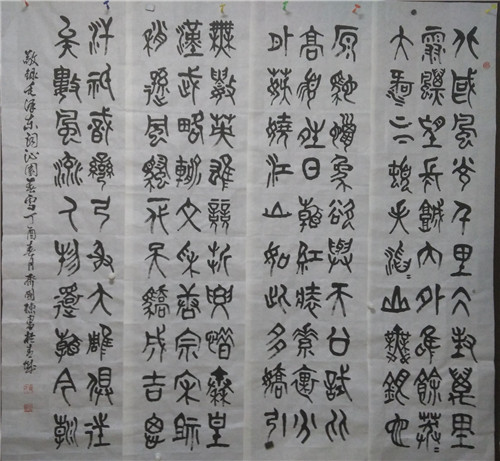 北國風光千里冰封萬里
雪飄望長城內外惟餘莽
大河上下頓失滔山舞銀蛇
原馳蠟象欲與天公試比
高須晴日看紅裝素裹分
外妖嬈江山如此多嬌引
無數英雄競折腰惜秦皇
漢武略輸文采唐宗宋祖
稍遜風騷一代天驕成吉思
汗祇識彎弓射大雕俱往
矣數風流人物還看今朝
敬錄毛泽东词沁園春雪丁酉春月齊國書於青